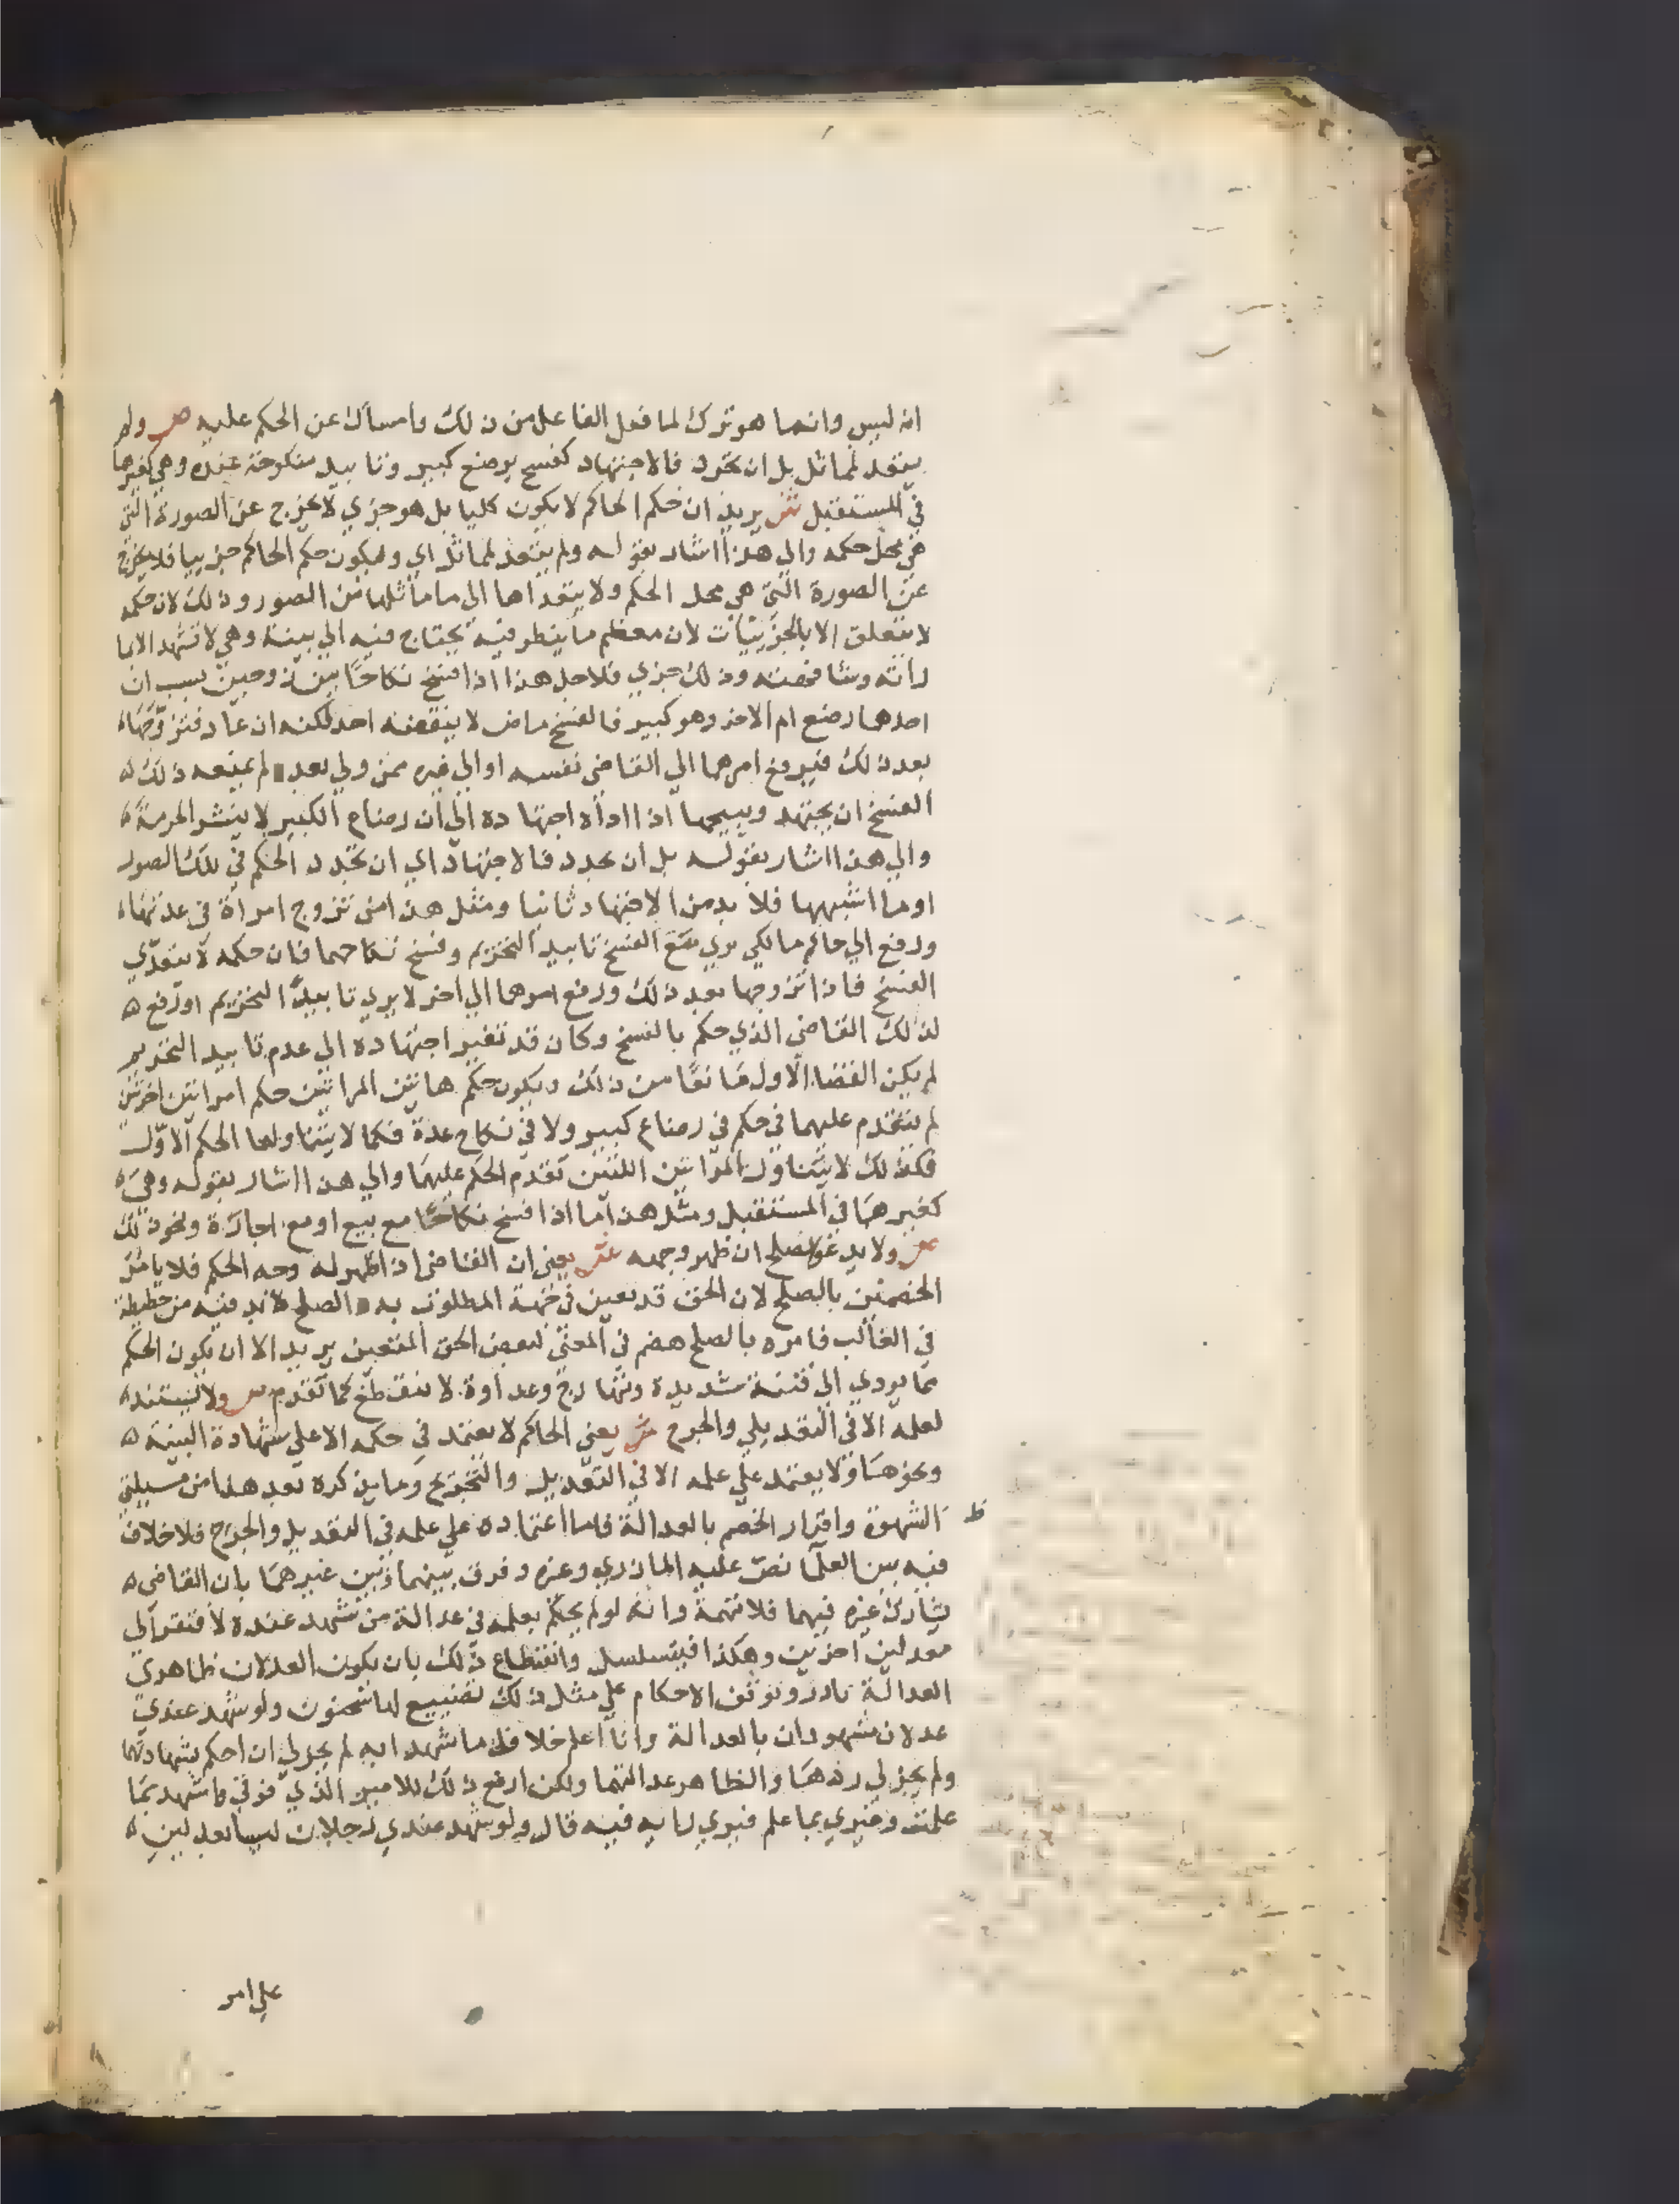 انه ليس وانما هو ترك لما فعل الفاعل من ذلك وامساك عن الحكم عليه ص ولم
يتعد لمماثل بل ان تجدد فالاجتهاد كفسخ برضع كبير وتابيد منكوحة عدة وهي كغيرها
في المستقبل ش يريد ان حكم الحاكم لا يكون كليا بل هو جزي لا يخرج عن الصورة التي
هي محل حكمه والي هذا اشار بقوله ولم يتعد لمماثل اي ويكون حكم الحاكم جزييا فلا يخرج
عن الصورة التي هي محل الحكم ولا يتعداها الي ما ماثلها من الصور وذلك لان حكمه
لا يتعلق الا بالجزييات لان معظم ما ينظر فيه يحتاج فيه الي بينة وهي لا تشهد الا بما
راته وشافهته وذلك جزي فلاجل هذا اذا فسخ نكاحا بين زوجين بسبب ان
احدهما رضع ام الاخر وهو كبير فالفسخ ماض لا ينقضه احد لكنه ان عاد فتزوجها
بعد ذلك فيرفع امرهما الي القاضي نفسه او الي غيره ممن ولي بعده لم يمنعه ذلك
الفسخ ان يجتهد ويبيحها اذا اداه اجتهاده الي ان رضاع الكبير لا ينشر الحرمة
والي هذا اشار بقوله بل ان تجدد فالاجتهاد اي ان تجدد الحكم في تلك الصور
او ما اشبهها فلا بد من الاجتهاد ثانيا ومثل هذا من تزوج امراة في عدتها
ورفع الي حاكم مالكي يري مع الفسخ تابيد التحريم وفسخ نكاحهما فان حكمه لا يتعدي
الفسخ فاذا تزوجها بعد ذلك ورفع امرهما الي اخر لا يري تابيد التحريم او رفع
لذلك القاضي الذي حكم بالفسخ وكان قد تغير اجتهاده الي عدم تابيد التحريم
لم يكن القضا الاول مانعا من ذلك ويكون حكم هاتين المراتين حكم امراتين اخرتين
لم يتقدم عليهما في حكم في رضاع كبير ولا في نكاح عدة فكما لا يتناولها الحكم الاول
فكذلك لا يتناول المراتين اللتين تقدم الحكم عليهما والي هذا اشار بقوله وهي
كغيرها في المستقبل ومثل هذا ما اذا فسخ نكاحا مع بيع او مع اجارة ونحو ذلك
ص ولا يدعو لصلح ان ظهر وجهه ش يعني ان القاضي اذا ظهر له وجه الحكم فلا يامر
الخصمين بالصلح لان الحق قد تعين في جهة المطلوب به والصلح لا بد فيه من حطيطة
في الغالب فامره بالصلح هضم في المعني لبعض الحق المتعين يريد الا ان يكون الحكم
مما يودي الي فتنة شديدة وتهارج وعداوة لا تنقطع كما تقدم ص ولا يستند
لعلمه الا في التعديل والجرح ش يعني الحاكم لا يعتمد في حكمه الا علي شهادة البينة
ونحوها ولا يعتمد علي علمه الا في التعديل والتجريح وما يذكره بعد هذا من مسيلتي
الشهرة واقرار الخصم بالعدالة فاما اعتماده علي علمه في التعديل والجرح فلا خلاف
فيه بين العلما نص عليه المازري وغيره وفرق بينهما وبين غيرهما بان القاضي
يشارك غيره فيهما فلا تهمة وانه لو لم يحكم بعلمه في عدالة من شهد عنده لافتقر الي
معدلين اخرين وهكذا فيتسلسل وانقطاع ذلك بان يكون العدلان ظاهري
العدالة نادر وتوقف الاحكام علي مثل ذلك تضييع لها سحنون ولو شهد عندي
عدلان مشهوران بالعدالة وانا اعلم خلاف ما شهدا به لم يجز لي ان احكم بشهادتهما
ولم يجز لي ردهما والظاهر عدالتهما ولكن ارفع ذلك للامير الذي فوقي واشهد بما
علمت وغيري بما علم فيري رايه فيه قال ولو شهد عندي رجلان ليسا بعدلين
علي امر